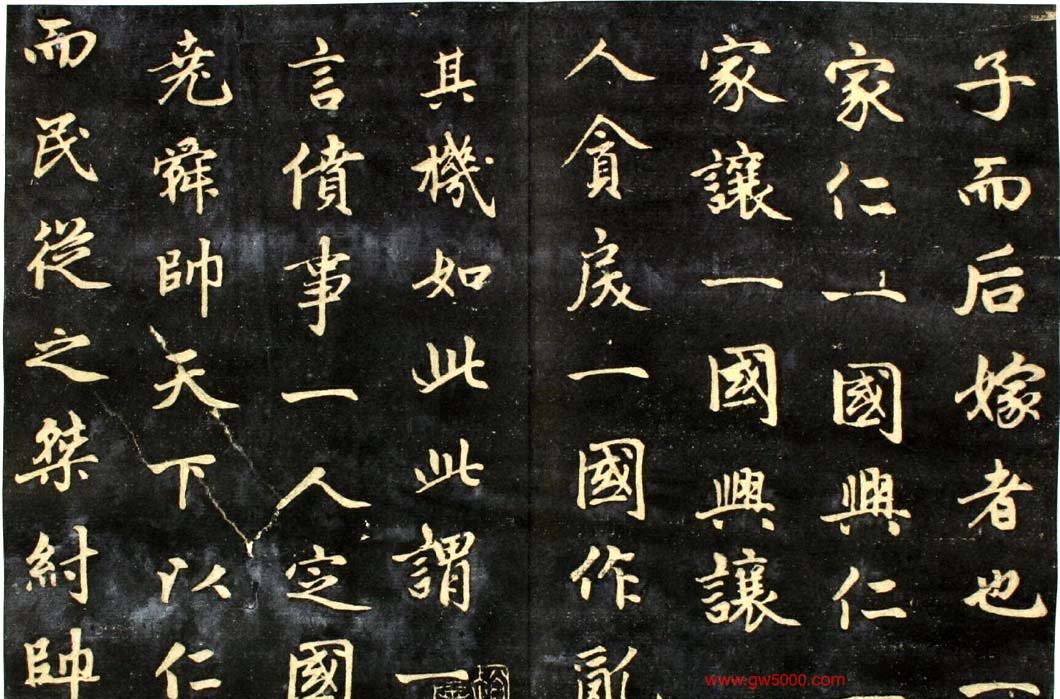 子而后嫁者也一
家仁一國興仁一
家讓一國興讓
人貪戾一國作亂
其機如此此謂一
言僨事一人定國
堯舜帥天下以仁
而民從之桀紂帥
www.gw5000.com